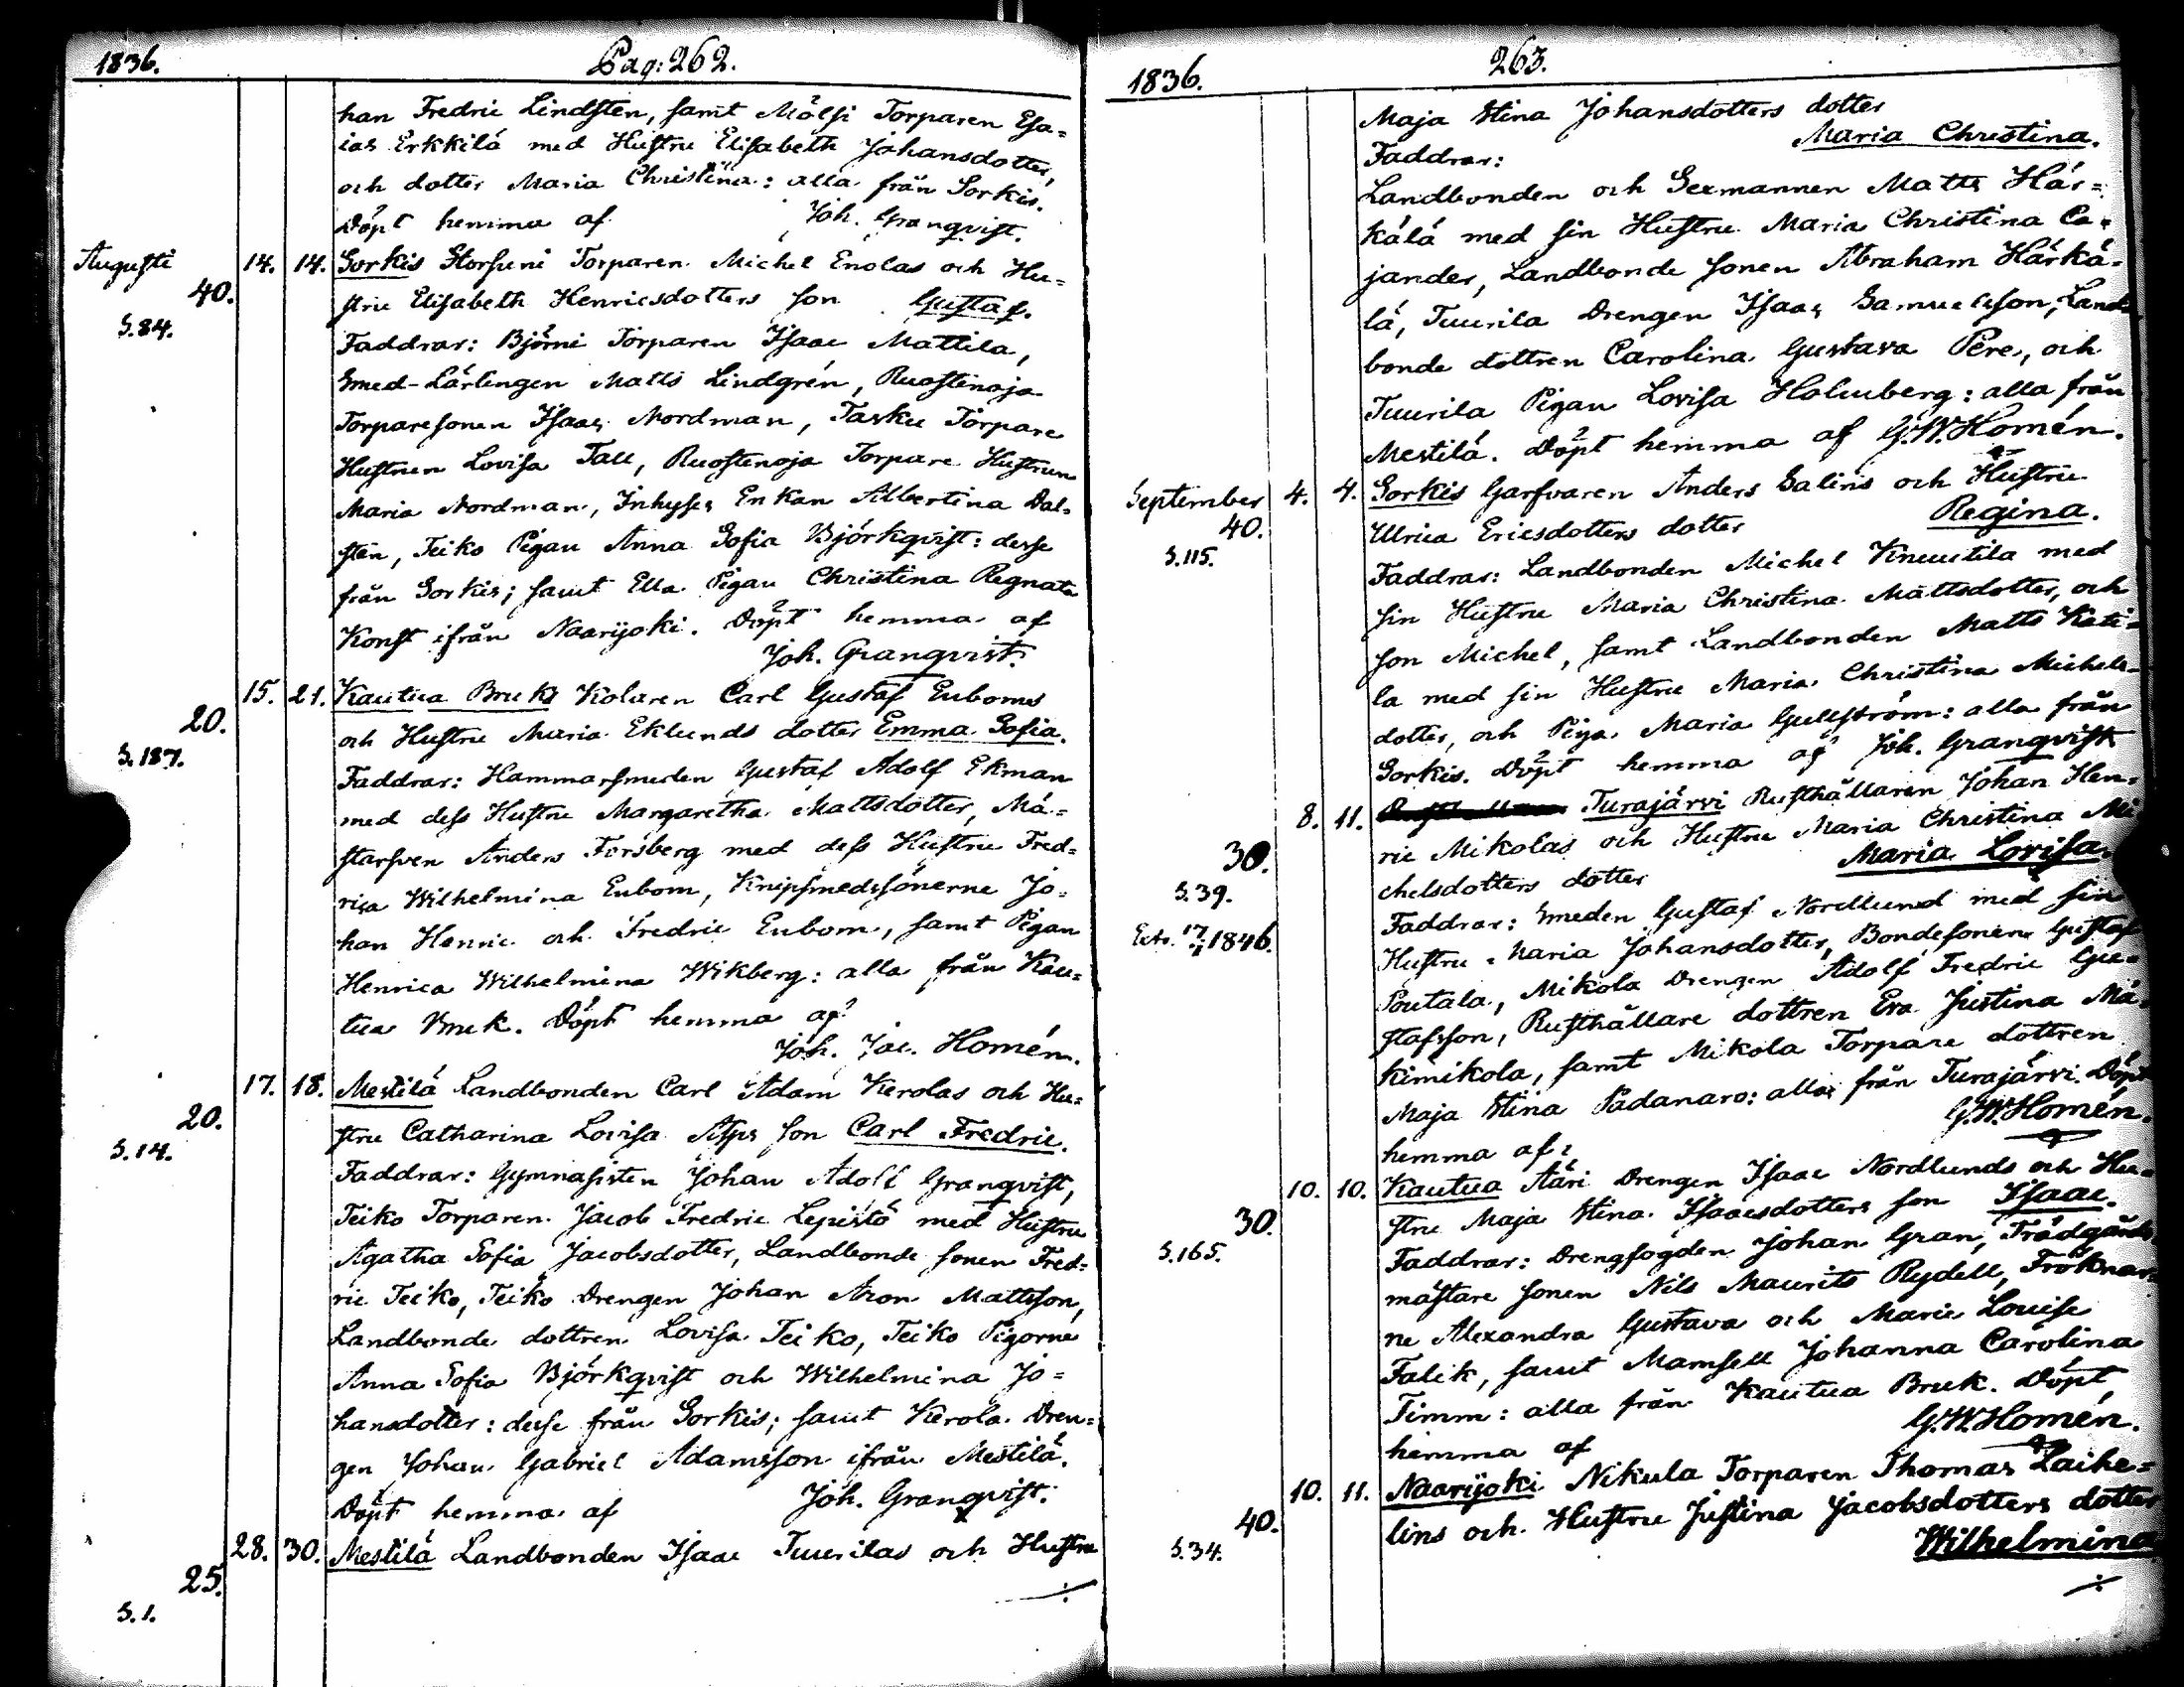 1836.
Pag: 262.
han Fredric Lindsten, samt Mölsi Torparen Esa=
ias Erkkilä med Hustru Elisabeth Johansdotter,
och dotter Maria Christina: alla från Sorkis.
Döpt hemma af Joh. Granqvist.
Augusti 14. 14. Sorkis Storsuni Torparen Michel Enolas och Hu=
40.
stru Elisabeth Henricsdotters son Gustaf.
S. 84.
Faddrar: Björni Torparen Isaac Mattila,
Smed-Lärlingen Matts Lindgrén, Ruostenoja
Torparesonen Isaac Nordman, Tasku Torpare
Hustrun Lovisa Tall, Ruostenoja Torpare Hustrun
Maria Nordman, Inhyses Enkan Albertina Dal=
stén, Teiko Pigan Anna Sofia Björkqvist: desse
från Sorkis; samt Ella Pigan Christina Regnata
Konst ifrån Naarijoki. Döpt hemma af
Joh. Granqvist.
15. 21. Kautua Bruks Kolaren Carl Gustaf Euboms
20.
och Hustru Maria Eklunds dotter Emma Sofia.
S. 187.
Faddrar: Hammarsmeden Gustaf Adolf Ekman
med dess Hustru Margaretha Mattsdotter, Mä=
starsven Anders Forsberg med dess Hustru Fred=
rica Wilhelmina Eubom, Knipsmedssönerne Jo=
han Henric och Fredric Eubom, samt Pigan
Henrica Wilhelmina Wikberg: alla från Kau=
tua Bruk. Döpt hemma af
Joh. Jac. Homén.
17. 18. Mestilä Landbonden Carl Adam Kerolas och Hu=
20.
stru Catharina Lovisa Asps son Carl Fredric.
S. 14.
Faddrar: Gymnasisten Johan Adolf Granqvist,
Teiko Torparen Jacob Fredric Lepistö med Hustru
Agatha Sofia Jacobsdotter, Landbonde sonen Fred=
ric Teiko, Teiko Drengen Johan Aron Mattsson,
Landbonde dottren Lovisa Teiko, Teiko Pigorne
Anna Sofia Björkqvist och Wilhelmina Jo=
hansdotter: desse från Sorkis; samt Kerola Dren=
gen Johan Gabriel Adamsson ifrån Mestilä.
Döpt hemma af Joh. Granqvist.
28. 30. Mestilä Landbonden Isaac Tuurilas och Hustru
25.
S. 1.
1836.
263.
Maja Stina Johansdotters dotter
Maria Christina.
Faddrar:
Landbonden och Sexmannen Matts Här=
kälä med sin Hustru Maria Christina Ca=
jander, Landbonde sonen Abraham Härkä=
lä, Tuurila Drengen Isaac Samuelsson, Land=
bonde dottren Carolina Gustava Pere, och
Tuurila Pigan Lovisa Holmberg: alla från
Mestilä. Döpt hemma af G. W. Homén.
September 4. 4. Sorkis Garfvaren Anders Salins och Hustru
40.
Ulrica Ericsdotters dotter Regina.
S. 115.
Faddrar: Landbonden Michel Knuutila med
sin Hustru Maria Christina Mattsdotter, och
son Michel, samt Landbonden Matts Keti=
la med sin Hustru Maria Christina Michels=
dotter, och Piga Maria Gullström: alla från
Sorkis. Döpt hemma af Joh. Granqvist
8. 11. Turajärvi Rusthållaren Johan Hen=
ric Mikolas och Hustru Maria Christina Mi
30.
chelsdotters dotter Maria Lovisa.
S. 39.
Faddrar: Smeden Gustaf Nordlund med sin
1846.
Hustru Maria Johansdotter, Bondesonen Gustaf
Poutala, Mikola Drengen Adolf Fredric Gu=
stafsson, Rusthållare dottren Eva Justina Mä=
kimikola, samt Mikola Torpare dottren
Maja Stina Padanaro: alla från Turajärvi. Döpt
hemma af: G. W. Homén.
10. 10. Kautua Ääri Drengen Isaac Nordlunds och Hu=
30.
stru Maja Stina Isaacsdotters son Isaac.
S. 165.
Faddrar: Drengfogden Johan Gran, Trädgårds
mästare sonen Nils Maurits Rydell, Fröknar=
ne Alexandra Gustava och Marie Louise
Falck, samt Mamsell Johanna Carolina
Timm: alla från Kautua Bruk. Döpt
hemma af G. W. Homén.
10. 11. Naarijoki Nikula Torparen Thomas Laihe=
40.
lins och Hustru Justina Jacobsdotters dotter
S. 34.
Wilhelmina